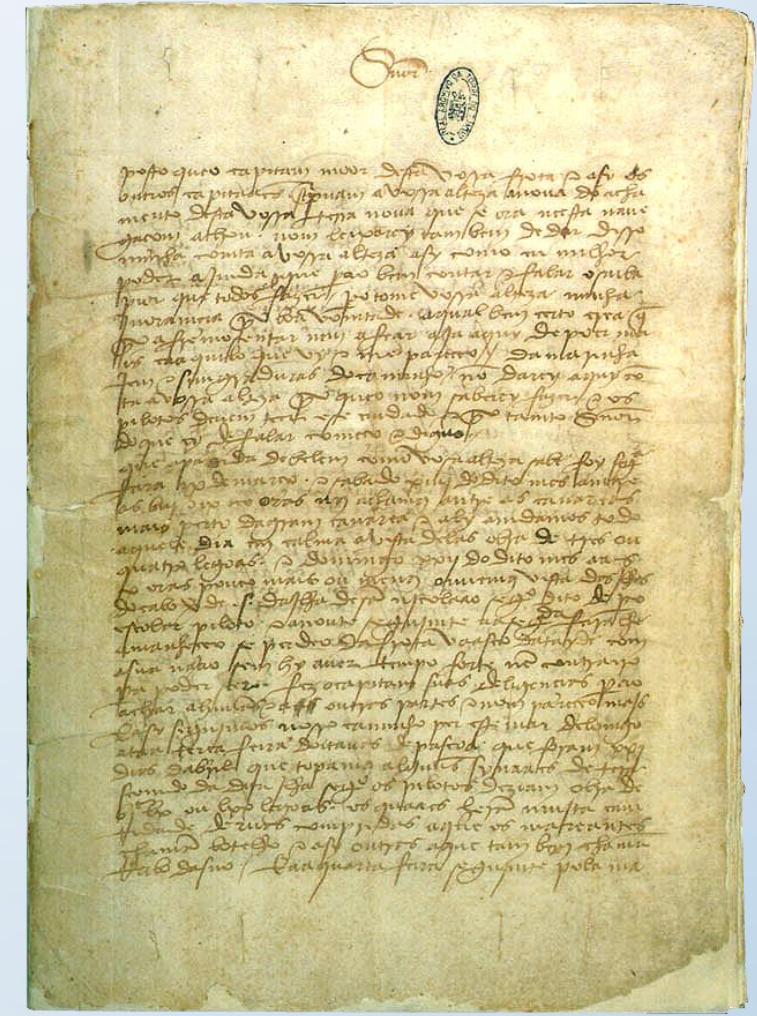 Snõr
posto queo capitam moor desta vossa frota e asy os
outros capitaães screpuam a vossa alteza a noua do acha
mento desta vossa terra noua que se ora neesta naue
gaçom achou. nom leixarey tambem de dar disso
minha comta a vossa alteza asy como eu milhor
poder ajmda que pera o bem contar e falar o saiba
pior que todos fazer. pero tome vossa alteza minha
jnoramçia por boa vomtade. a qual bem çerto crea q̃
por afremosentar nem afear aja aquy de poer ma
is caa aquilo que vy e me pareçeo / da marinha
jem e simgraduras do caminho nõ darey aquy cõ
ta a vossa alteza por que o nom saberey fazer e os
pilotos deuem teer ese cuidado e por tanto Snõr
do que ey de falar começo e diguo /
que a partida de belem como vosa alteza sabe foy segª
feira ix de março. e sabado xiiij do dito mes amtre
as biij e ix oras nos achamos antre as canareas
mais perto da gram canarea e aly amdamos todo
aquele dia em calma a vista delas obra de tres ou
quatro legoas. e domingo xxij do dito mes aas
x oras pouco mais ou menos ouuemos vista das jlhas
do cabo verde .s. da jlha de sã njcolaao segº dito de pº
escolar piloto. e a noute segujnte aa segda feira lhe
amanheceo se perdeo da frota vaasco datayde com
a sua naao sem hy auer tempo forte nẽ contrairo
pera poder seer. fez o capitam suas deligençias pera o
achar a huũas e a outras partes e nom pareçeo majs
E asy segujmos nosso caminho per este mar de lomgo
ataa terça feira doitauas de pascoa que foram xxj
dias dabril que topamos alguũs synaaes de tera
seemdo da dita jlha segº os pilotos deziam obra de
bjc lx ou lxx legoas. os quaaes herã mujta cam
tidade deruas compridas aque os mareantes
chamã botelho e asy outras aque tam bem chamã
rrabo dasno / E aa quarta feira segujnte pola ma